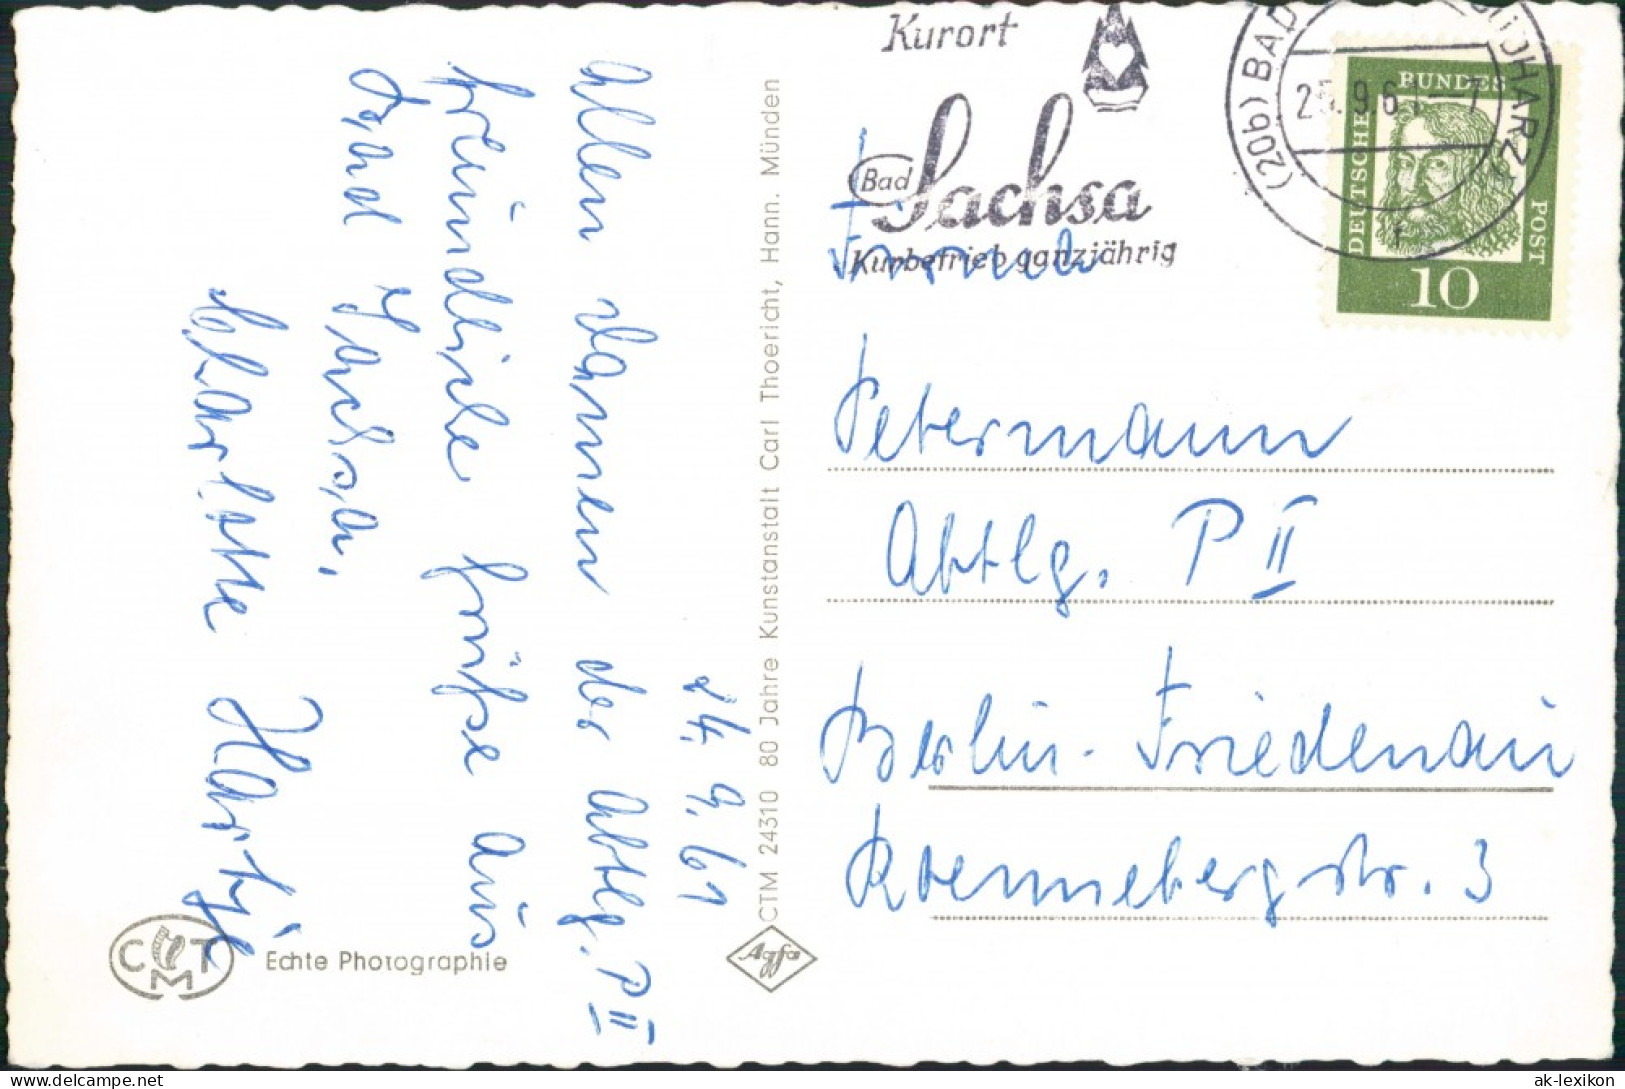 24. 9. 61
Allen Damen der Abtlg. P II
freundliche Grüße aus
Bad Sachsa.
Charlotte Hartje
CMT
Echte Photographie
CTM 24310 80 Jahre Kunstanstalt Carl Thoericht, Hann. Münden
Agfa
Kurort
Bad Sachsa
Kurbetrieb ganzjährig
(20b) BAD SÜDHARZ
25.9.61-7
r
DEUTSCHE BUNDES POST
10
Firma
Petermann
Abtlg. P II
Berlin-Friedenau
Roennebergstr. 3
ak-lexikon
www.delcampe.net